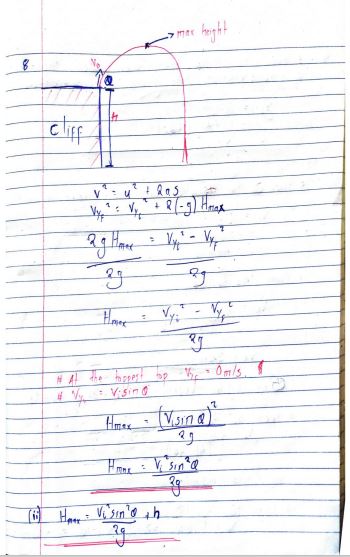 max height
8
V₀
θ
H
Cliff
v² = u² + 2as
Vyf² = Vyi² + 2(-g) Hmax
2g Hmax / 2g = Vyi² - Vyf² / 2g
Hmax = Vyi² - Vyf² / 2g
# At the toppest top Vyf = 0m/s.
# Vyi = Vi sin θ
Hmax = (Vi sin θ)² / 2g
Hmax = Vi² sin² θ / 2g
(ii) Hmax = Vi² sin² θ / 2g + h